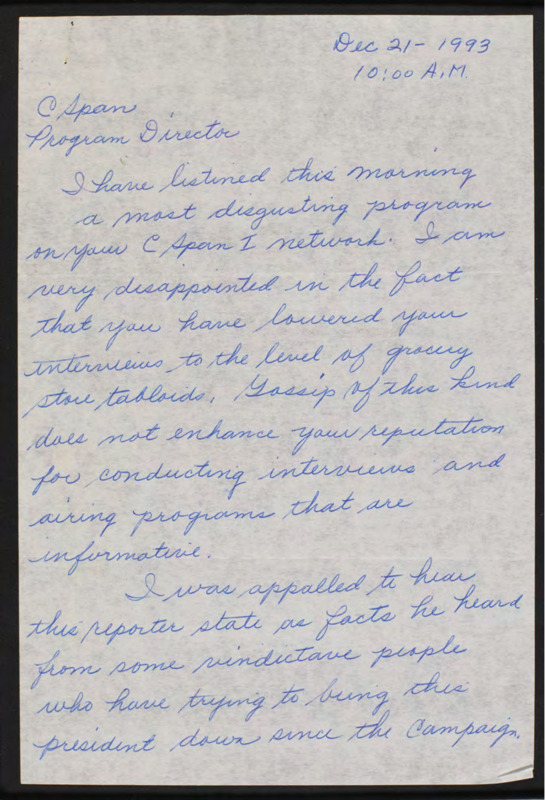 Dec 21 - 1993
10:00 A.M.
C Span
Program Director
I have listened this morning
a most disgusting program
on your C Span I network. I am
very disappointed in the fact
that you have lowered your
interviews to the level of grocery
store tabloids. Gossip of this kind
does not enhance your reputation
for conducting interviews and
airing programs that are
informative.
I was appalled to hear
this reporter state as facts he heard
from some vindictave people
who have trying to bring this
president down since the Campaign.